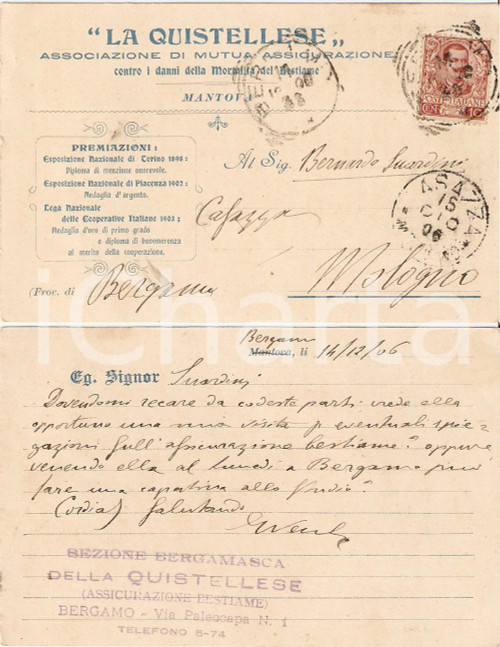 "LA QUISTELLESE„
ASSOCIAZIONE DI MUTUA ASSICURAZIONE
contro i danni della Mortalità del Bestiame
MANTOVA
BERGAMO
POSTE ITALIANE
CENT. 10
PREMIAZIONI:
Esposizione Nazionale di Torino 1898:
Diploma di menzione onorevole.
Esposizione Nazionale di Piacenza 1902:
Medaglia d'argento.
Lega Nazionale
delle Cooperative Italiane 1903;
Medaglia d'oro di primo grado
e diploma di benemerenza
al merito della cooperazione.
Al Sig. Bernardo Suardini
Cafazza
Mologno
(Prov. di Bergamo
iCharta
Bergamo
Mantova, li 14/12/06
Eg. Signor Suardini
Dovendomi recare da codeste parti vede ella
opportuno una mia visita p eventuali spie=
gazioni sull'assicurazione bestiame? oppure
venendo ella al lunedi a Bergamo può
fare una capatina allo studio?
Cordial) salutando
SEZIONE BERGAMASCA
DELLA QUISTELLESE
(ASSICURAZIONE BESTIAME)
BERGAMO - Via Paleocapa N. 1
TELEFONO 5-74